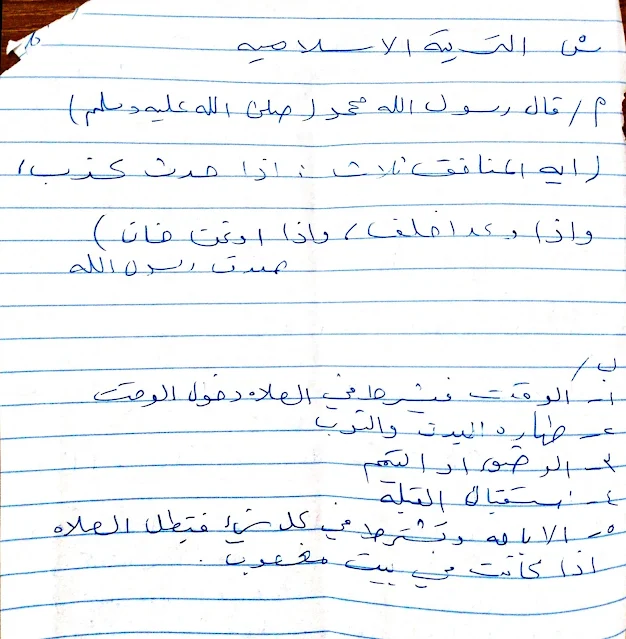 ش التربية الاسلاميه
م / قال رسول الله محمد (صلى الله عليه وسلم)
(ايه المنافق ثلاث : اذا حدث كذب،
واذا وعد اخلف، واذا اوتمن خان)
صدق رسول الله
ب /
١- الوقت فيشرط في الصلاه دخول الوقت
٢- طهاره البدن والثوب
٣- الوضوء او التيمم
٤- استقبال القبلة
٥- الاباحه وتشترط في كل شيء فتبطل الصلاه
اذا كانت في بيت مغصوب.